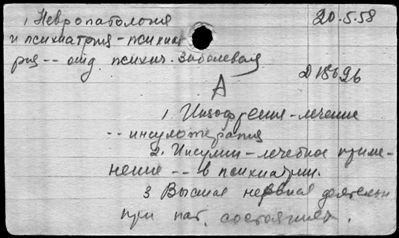 1, Невропатология 20.5.58
и психиатрия - психиат
рия -- отд психич. заболевания
А Д 18696
1. Шизофрения - лечение
-- инсулотерапия
2. Инсулин - лечебное приме-
нение -- в психиатрии.
3. Высшая нервная деятельн
при пат. состояниях.